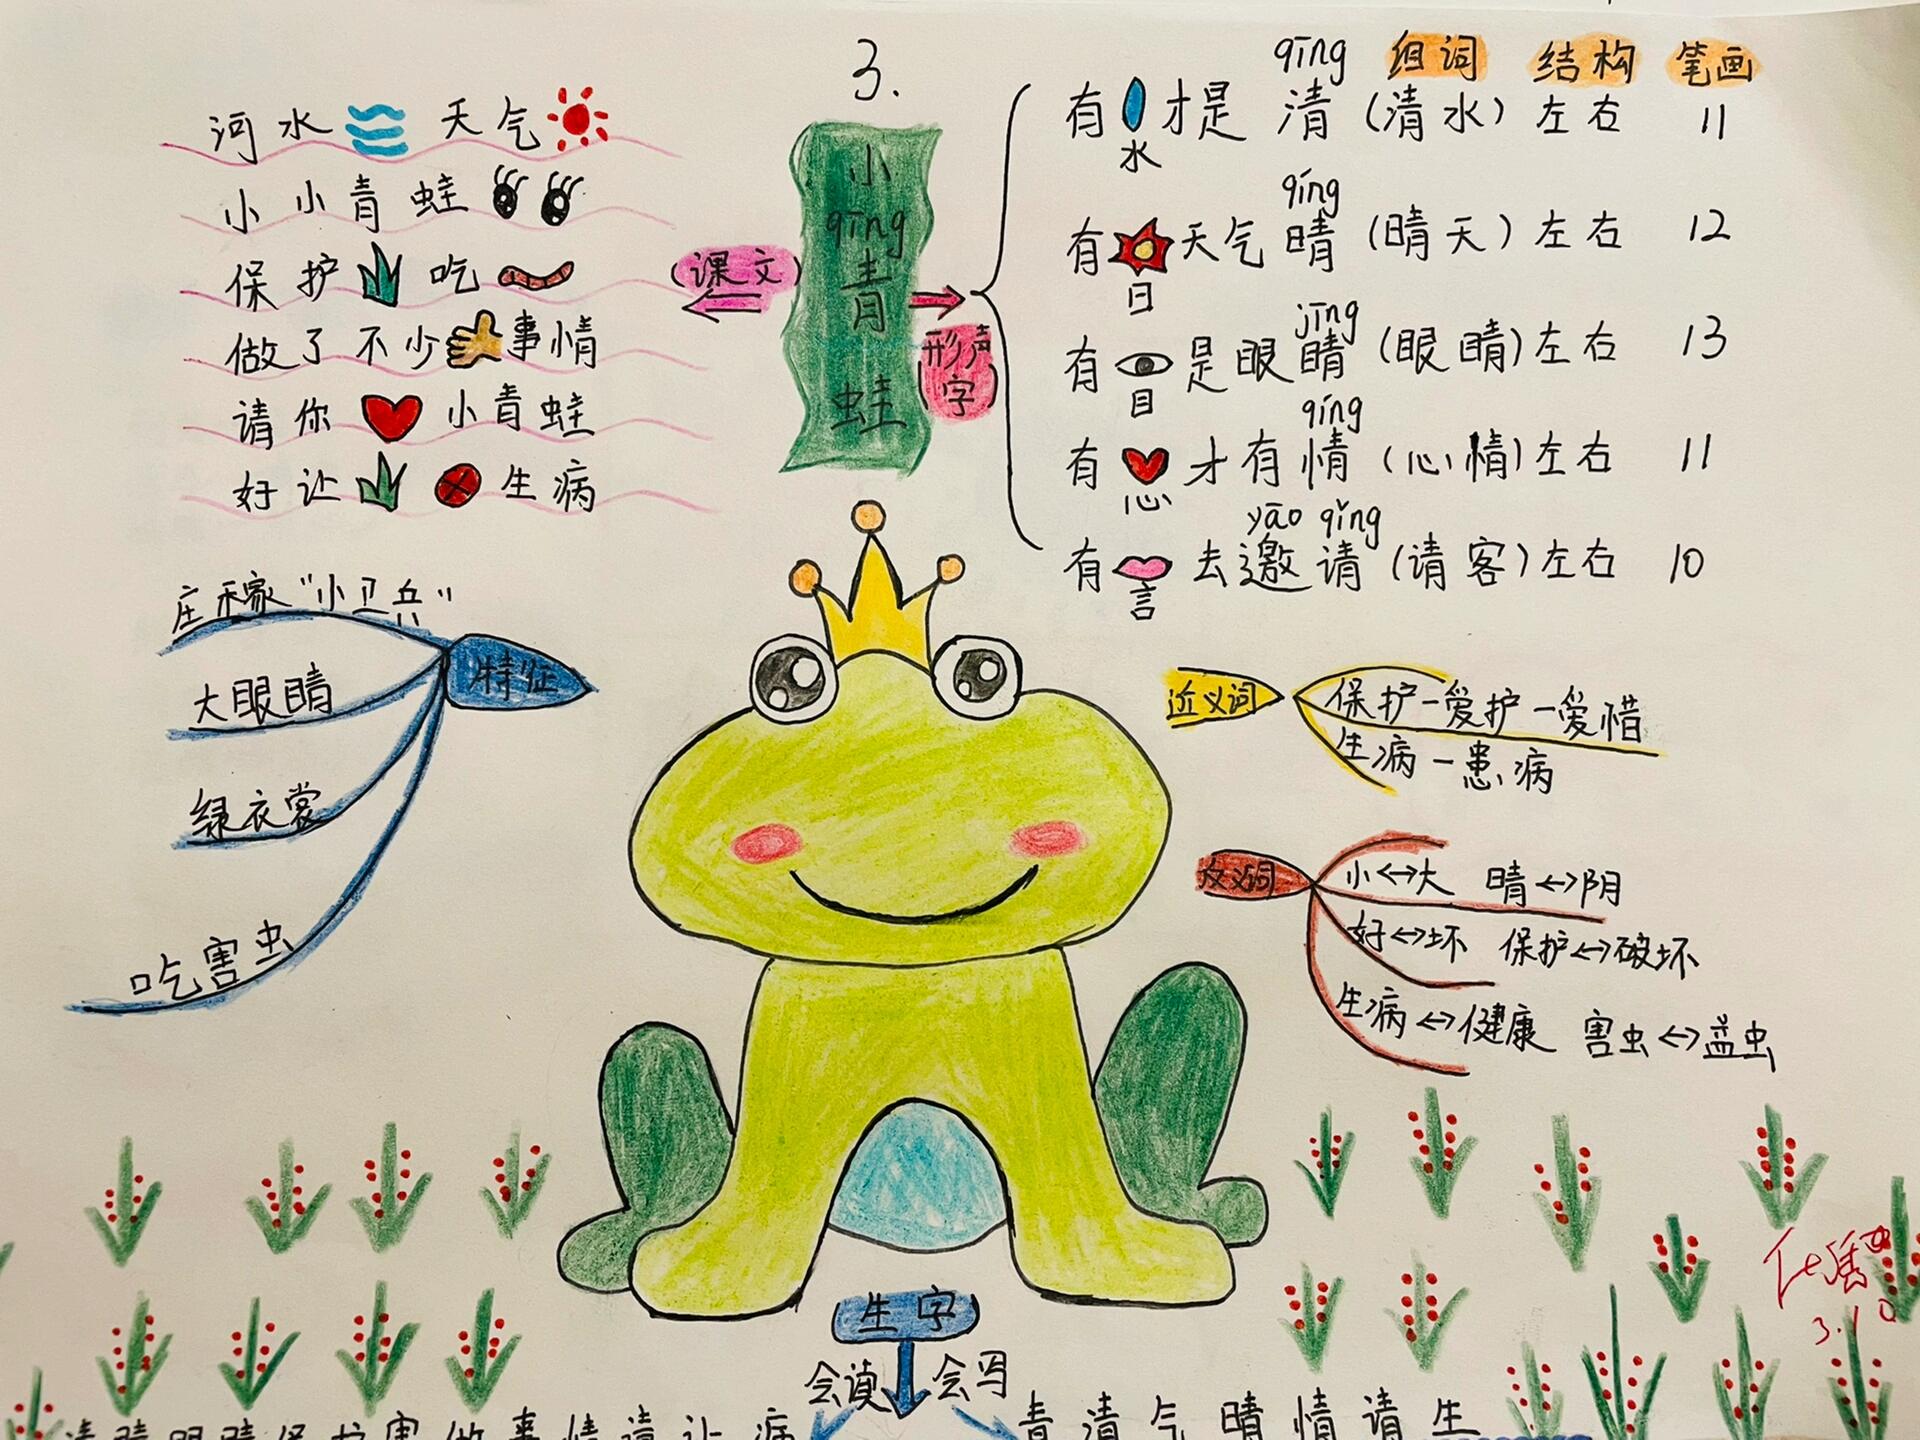 3.
小
qīng
青
蛙
课文
河水 天气
小小青蛙
保护 吃
做了不少 事情
请你 小青蛙
好让 生病
形声
字
qīng 组词 结构 笔画
有 才是 清 (清水) 左右 11
水
qíng
有 天气 晴 (晴天) 左右 12
日
jīng
有 是眼睛 (眼睛) 左右 13
目
qíng
有 才有情 (心情) 左右 11
心
yāo qǐng
有 去邀请 (请客) 左右 10
言
特征
庄稼“小卫兵”
大眼睛
绿衣裳
吃害虫
近义词
保护-爱护-爱惜
生病-患病
反义词
小↔大 晴↔阴
好↔坏 保护↔破坏
生病↔健康 害虫↔益虫
3.10
生字
会读 会写
清晴眼睛保护害做事情请让病
青清气晴情请生